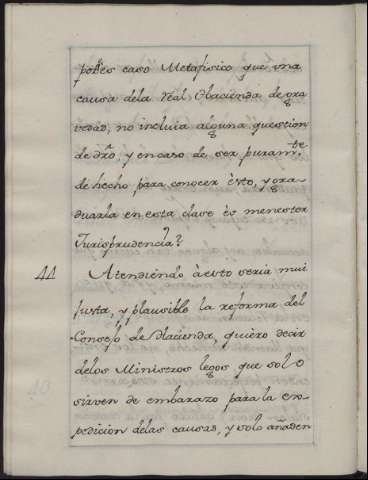 caso Metafisico que una
causa dela Real Hacienda de gra
vedad, no incluia alguna question
de dro, y en caso de ser puram.te
de hecho para conocer esto, y gra
duarla en esta clave és menester
Jurisprudencia?
44 Atendiendo à esto seria mui
justa, y plausible la reforma del
Consejo de Hacienda, quiero decir
delos Ministros legos que solo
sirven de embarazo para la ex
pedicion delas causas, y solo añaden